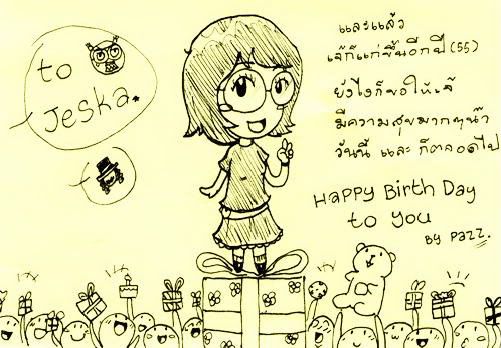 to
Jeska.
และแล้ว
เจ้ก็แก่ขึ้นอีกปี (55)
ยังไงก็ขอให้เจ้
มีความสุขมากๆน๊า
วันนี้ และ ก็ตลอดไป
Happy Birth Day
to you
By Pazz.